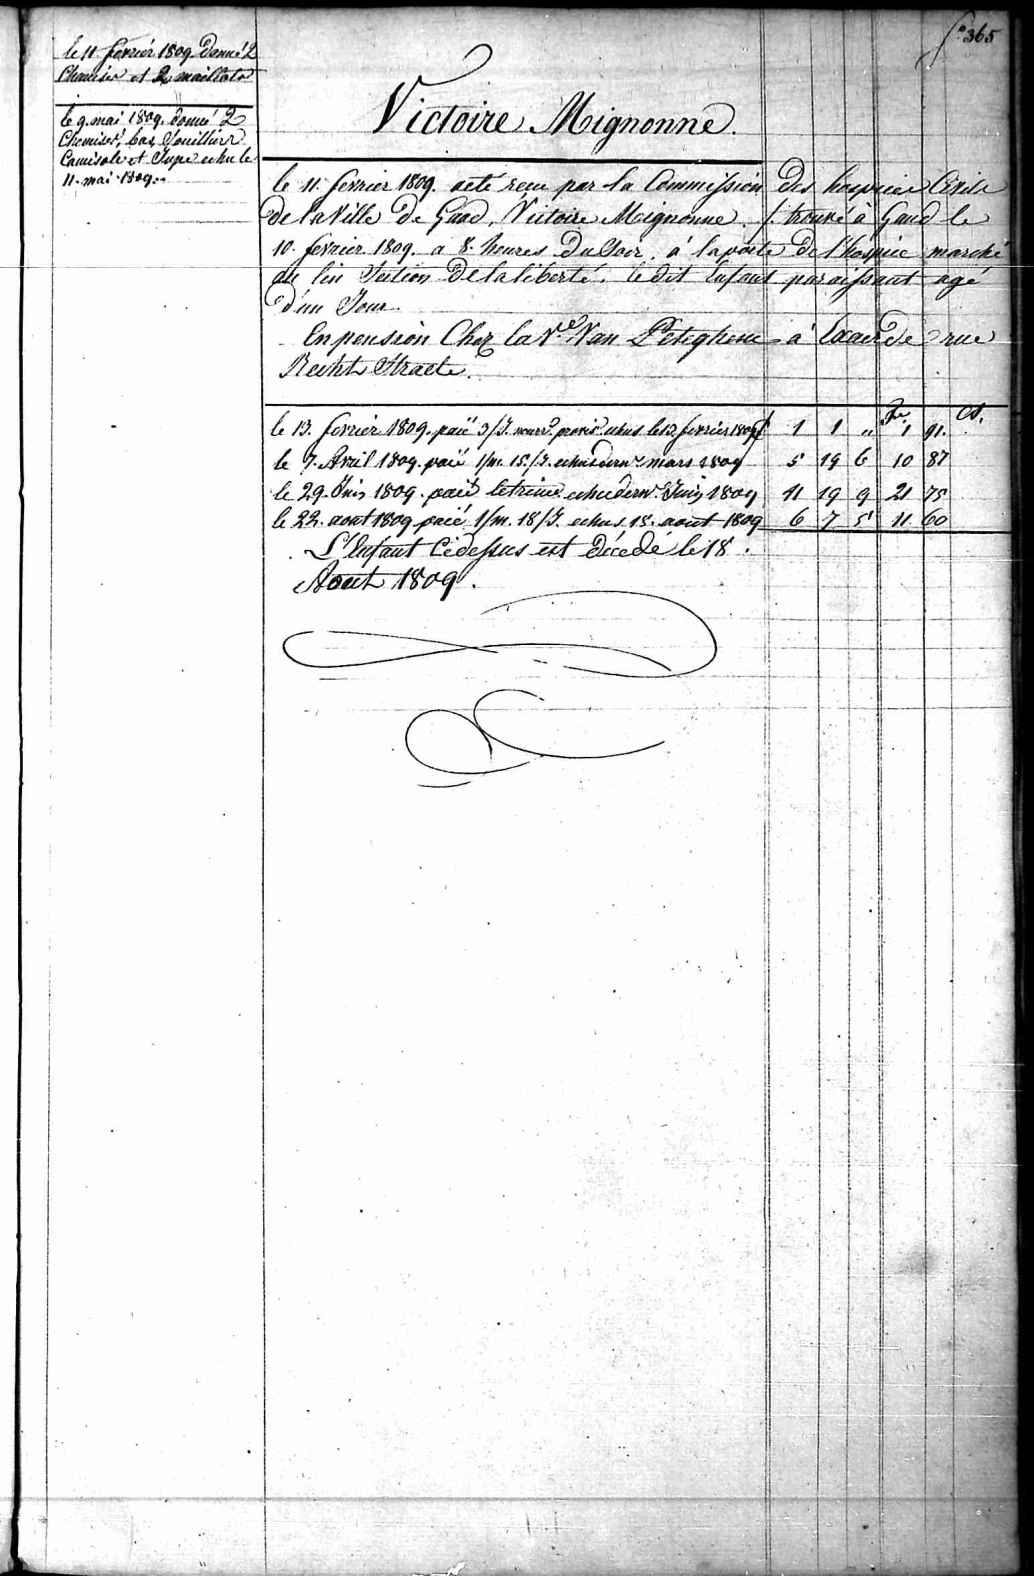 fo 365
le 11 fevrier 1809. donné 2
Chemises et 2 maillots
le 9. mai 1809. donné 2
Chemises, bas, Souilliers
Camisole et Jupe echu le
11. mai 1809.
Victoire Mignonne.
le 11. fevrier 1809. a eté reçu par la Commission des hospices Civils
de la Ville de Gand, Victoire Mignonne /. trouvé à Gand le
10. fevrier 1809. a 8. heures du Soir, à la porte de l'hospice marché
au lin Section de la liberté. le dit Enfant paraissant agé
d'un Jour.
En pension Chez la Ve. Van Peteghem à Exaerde rue
Recht Straete.
Frs. Cs.
le 13. fevrier 1809. paié 3/J. nourr. provis. echus le 13. fevrier 1809 1 1 „ 1 91.
le 7. Avril 1809. paié 1/m. 15./J. echus dern. mars 1809 5 19 6 10 87
le 29. Juin 1809. paié le trim. echu dern. Juin 1809 11 19 9 21 75
le 22. aout 1809 paié 1/m. 18/J. echus 18. aout 1809 6 7 5 11 60
L'Enfant Cidessus est décedé le 18
Aout 1809.